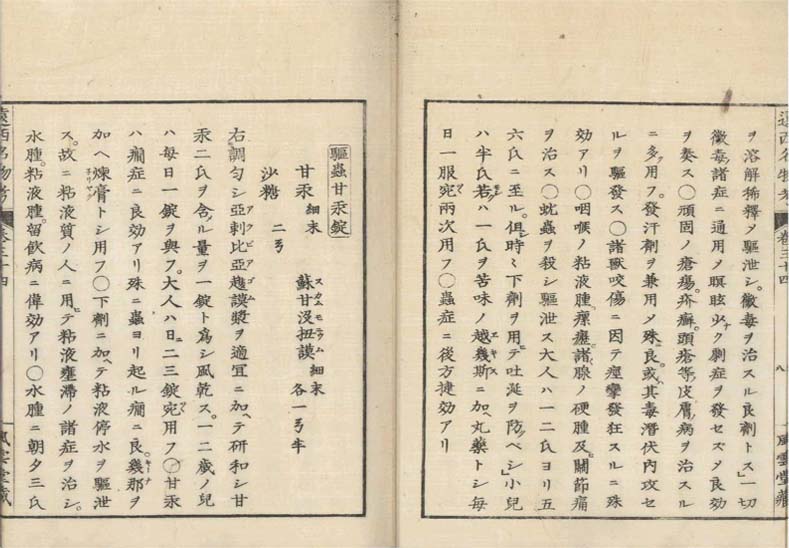 ヲ溶解稀釋〆驅泄シ。黴毒ヲ治スル良劑トス」一切
黴毒諸症ニ通用〆瞑眩少ナク劇症ヲ發セズ〆良効
ヲ奏ス○頑固ノ瘡瘍。疥癬。頭瘡等。皮膚病ヲ治スル
ニ多用フ。發汗劑ヲ兼用〆殊ニ良。或ハ其毒潜伏内攻セ
ルヲ驅發ス○諸獸咬傷ニ因テ痙攣發狂スルニ殊
効アリ○咽喉ノ粘液腫。瘰癧。諸腺ノ硬腫及ヒ關節痛
ヲ治ス○蚘蟲ヲ殺シ驅泄ス大人ハ一二氏ヨリ五
六氏ニ至ル。但時々下劑ヲ用テ吐涎ヲ防クベシ」小兒
ハ半氏若クハ一氏ヲ苦味ノ越幾斯ニ加ヘ丸藥トシ每
日一服宛兩次用フ○蟲症ニ後方捷効アリ
遠西名物考 卷三十四 八 風雲堂藏
驅蟲甘汞錠
甘汞 細末 蘇甘没扭謨 細末 各一弓半
スカムモニウム
沙糖 二弓
右調勻シ亞剌比亞護謨漿ヲ適宜ニ加ヘテ研和シ甘
アラビアゴム
汞二氏ヲ含ムノ量ヲ一錠ト爲シ風乾ス。一二歳ノ兒
ハ每日一錠ヲ與フ。大人ハ日ニ二三錠宛用フ○甘汞
ハ癇症ニ良効アリ殊ニ蟲ヨリ起ル癇ニ良。幾那ヲ
加ヘ煉膏トシ用フ○下劑ニ加ヘテ粘液停水ヲ驅泄
ス。故ニ粘液質ノ人ニ用テ粘液壅滯ノ諸症ヲ治シ。
水腫。粘液腫。留飲病ニ偉効アリ○水腫ニ朝夕三氏
遠西名物考 卷三十四 風雲堂藏